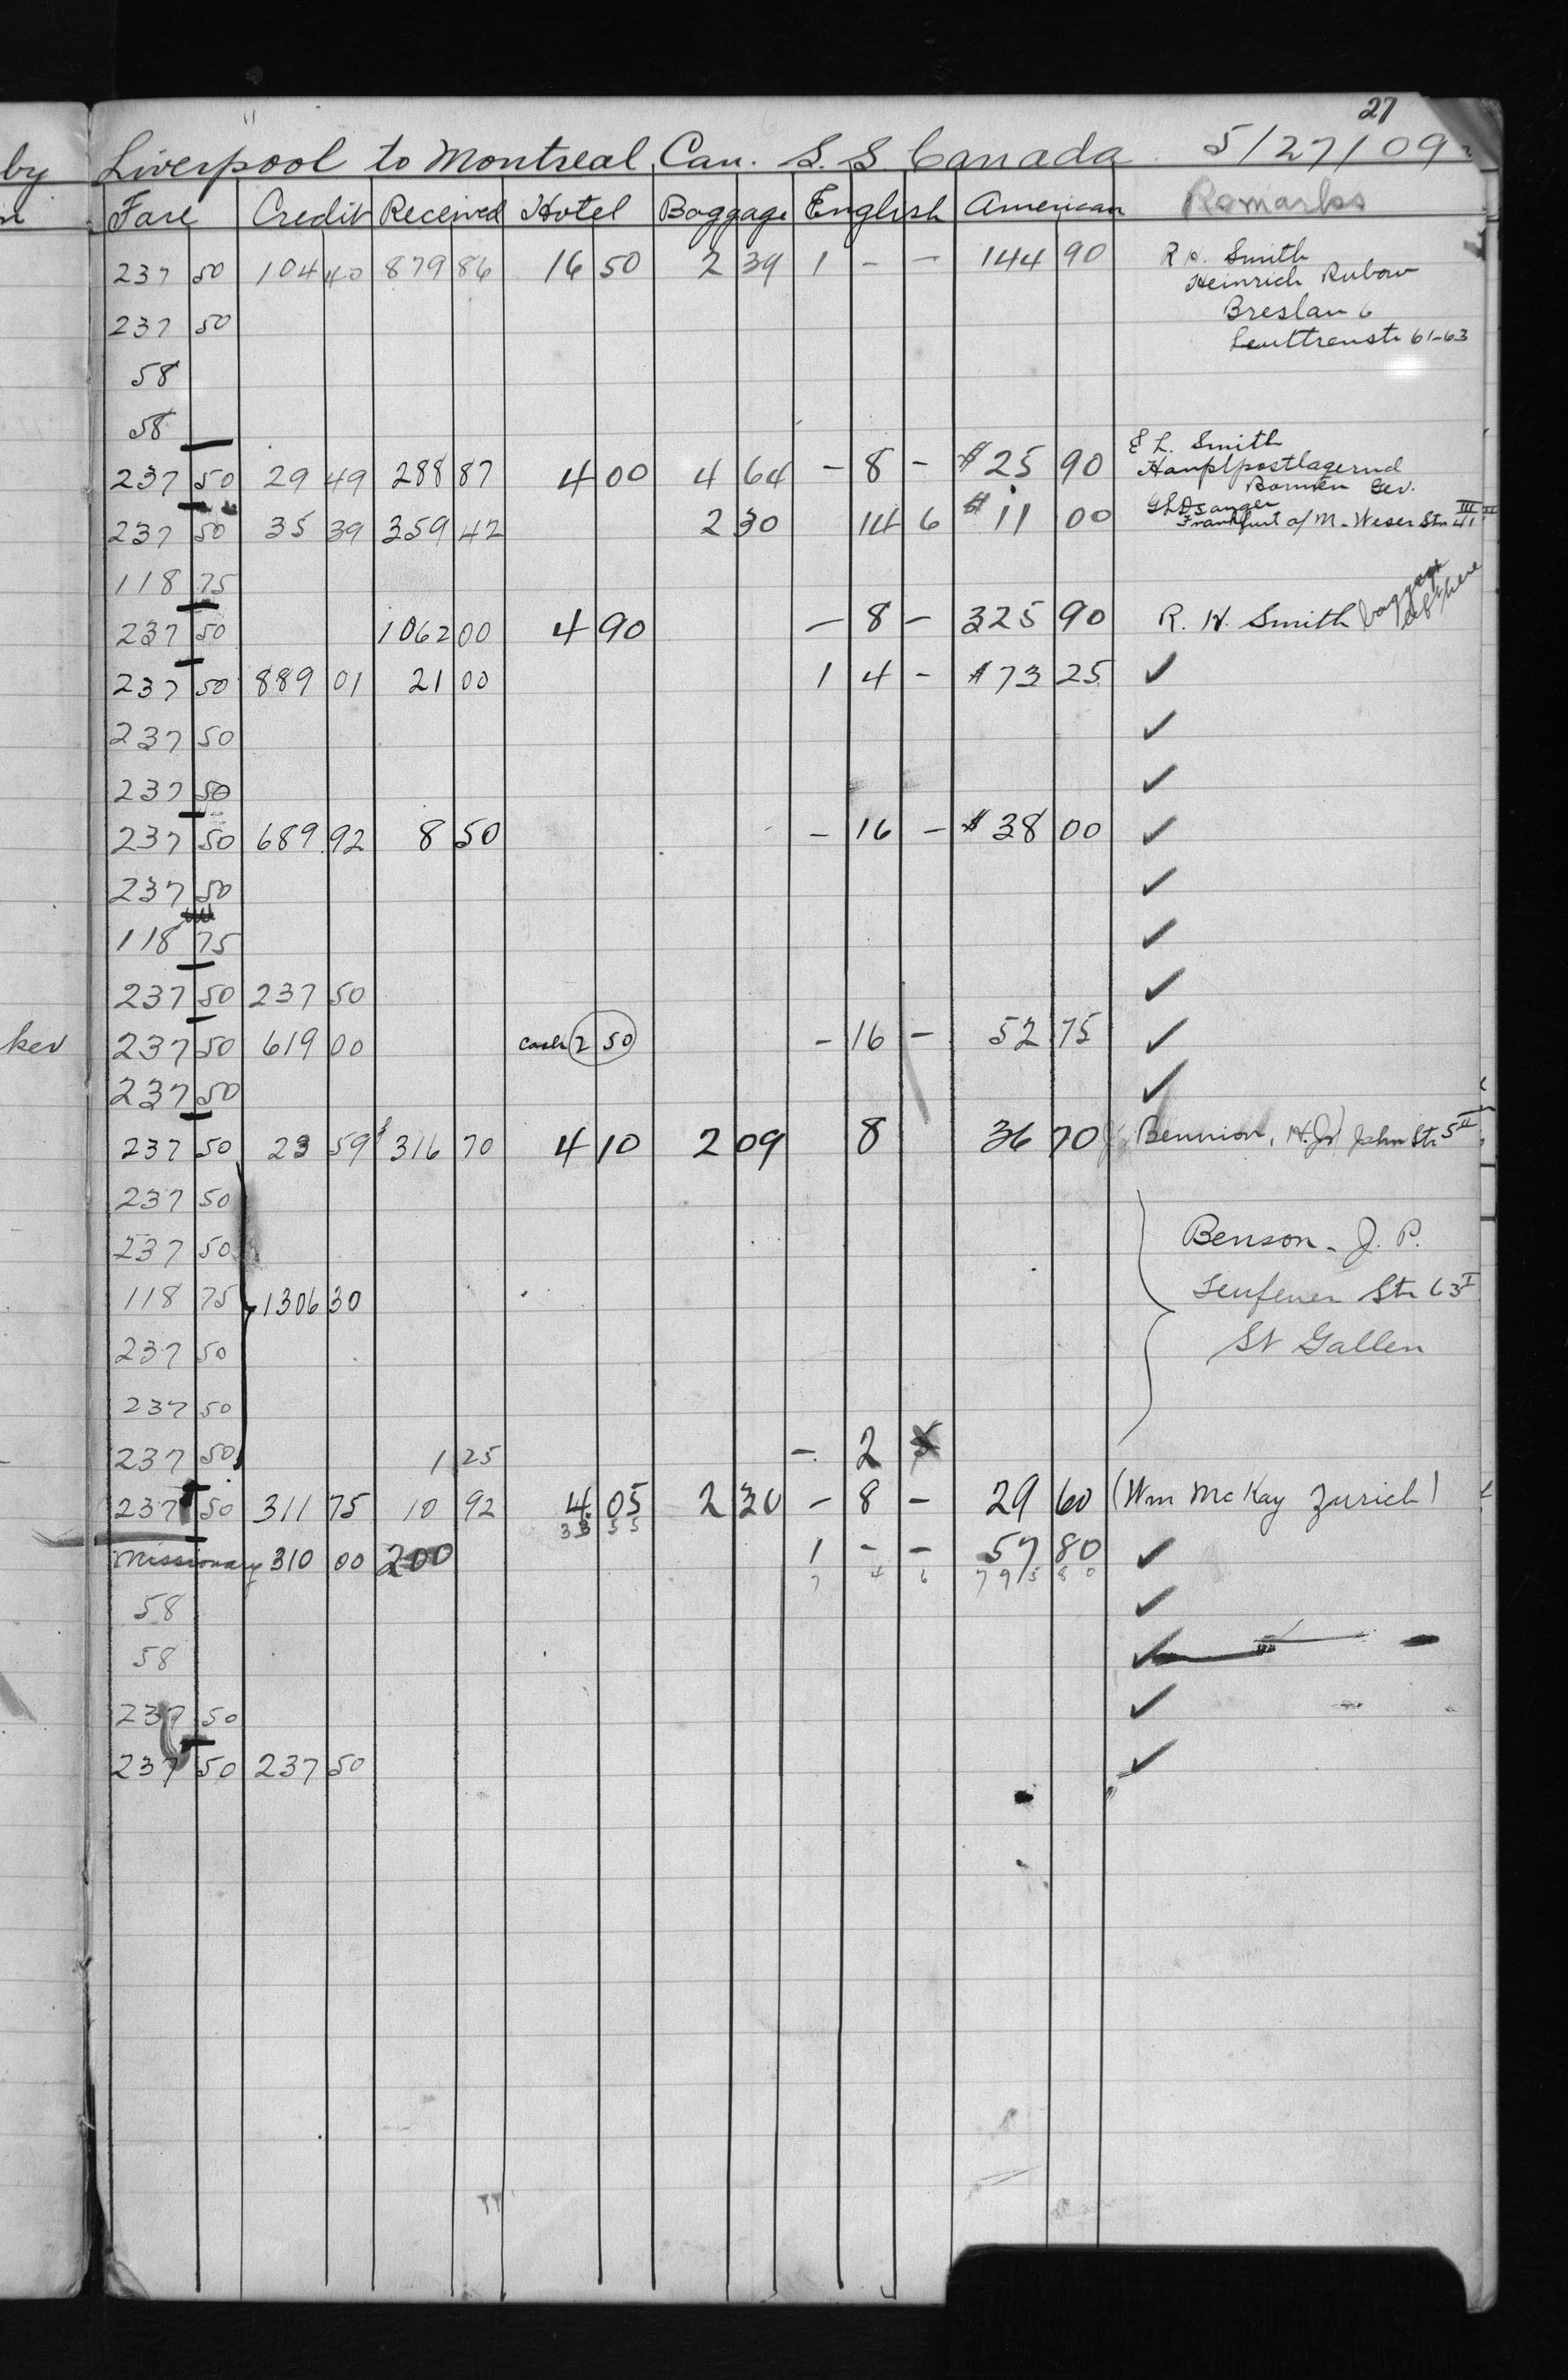 27
by Liverpool to Montreal, Can. S. S. Canada 5/27/09
Fare Credit Received Hotel Baggage English American Remarks
237 50 104 40 879 86 16 50 2 39 1 - - 144 90 R H. Smith
Heinrich Rubow
237 50 Breslau 6
61-63
58
58
E L. Smith
237 50 29 49 288 87 4 00 4 64 - 8 - $25 90 Hauptpostlagernd
Barmen Ger.
237 50 35 39 359 42 2 30 14 6 $11 00
Frankfurt a/M - Weser Str. 41 III
118 75
237 50 1062 00 4 90 - 8 - 325 90 R. H. Smith baggage
237 50 889 01 21 00 1 4 - $73 25 ✓
237 50 ✓
237 50 ✓
237 50 689 92 8 50 - 16 - $38 00 ✓
237 50 ✓
118 75 ✓
237 50 237 50 ✓
ker 237 50 619 00 cash 2 50 - 16 - 52 75 ✓
237 50 ✓
237 50 23 59 316 70 4 10 2 09 8 36 70 Bennion, H. John Str. 5 II
237 50
237 50 Benson - J. P.
118 75 1306 30 Teufener Str 63 I
237 50 St Gallen
237 50
237 50 1 25 - 2
237 50 311 75 10 92 4 05 2 30 - 8 - 29 60 (Wm McKay Zurich)
33 55
Missionary 310 00 200 1 - - 57 80 ✓
7 4 6 795 80
58 ✓
58 ✓
237 50 ✓
237 50 237 50 ✓